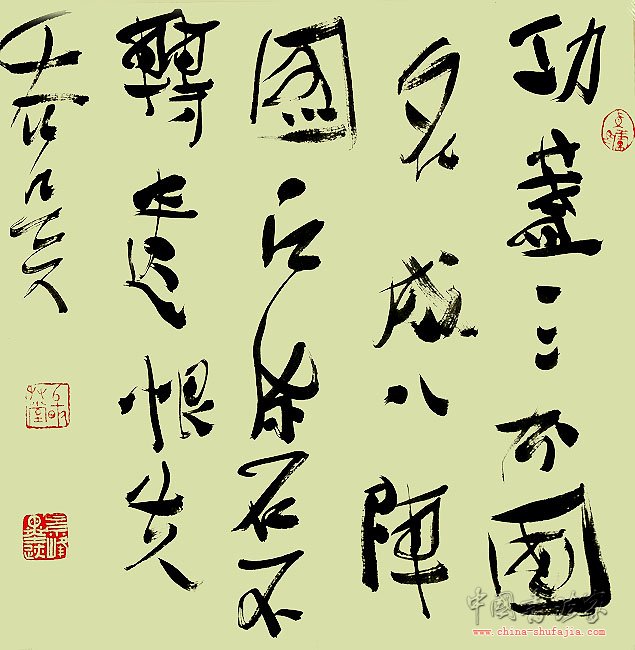 功蓋三分國
名成八陣
圖江流石不
轉遺恨失
吞吴
中國书法家
www.china-shufajia.com